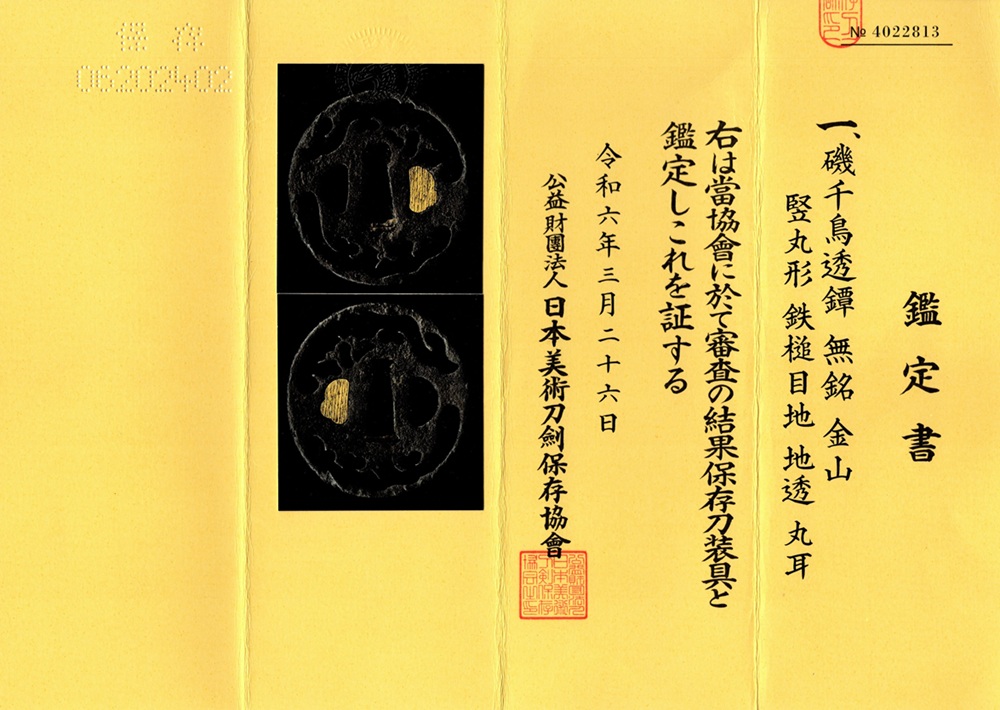 № 4022813
鑑定書
一、磯千鳥透鐔 無銘 金山
竪丸形 鉄槌目地 地透 丸耳
右は當協會に於て審査の結果保存刀装具と
鑑定しこれを証する
令和六年三月二十六日
公益財團法人 日本美術刀劍保存協會
保存
06202402